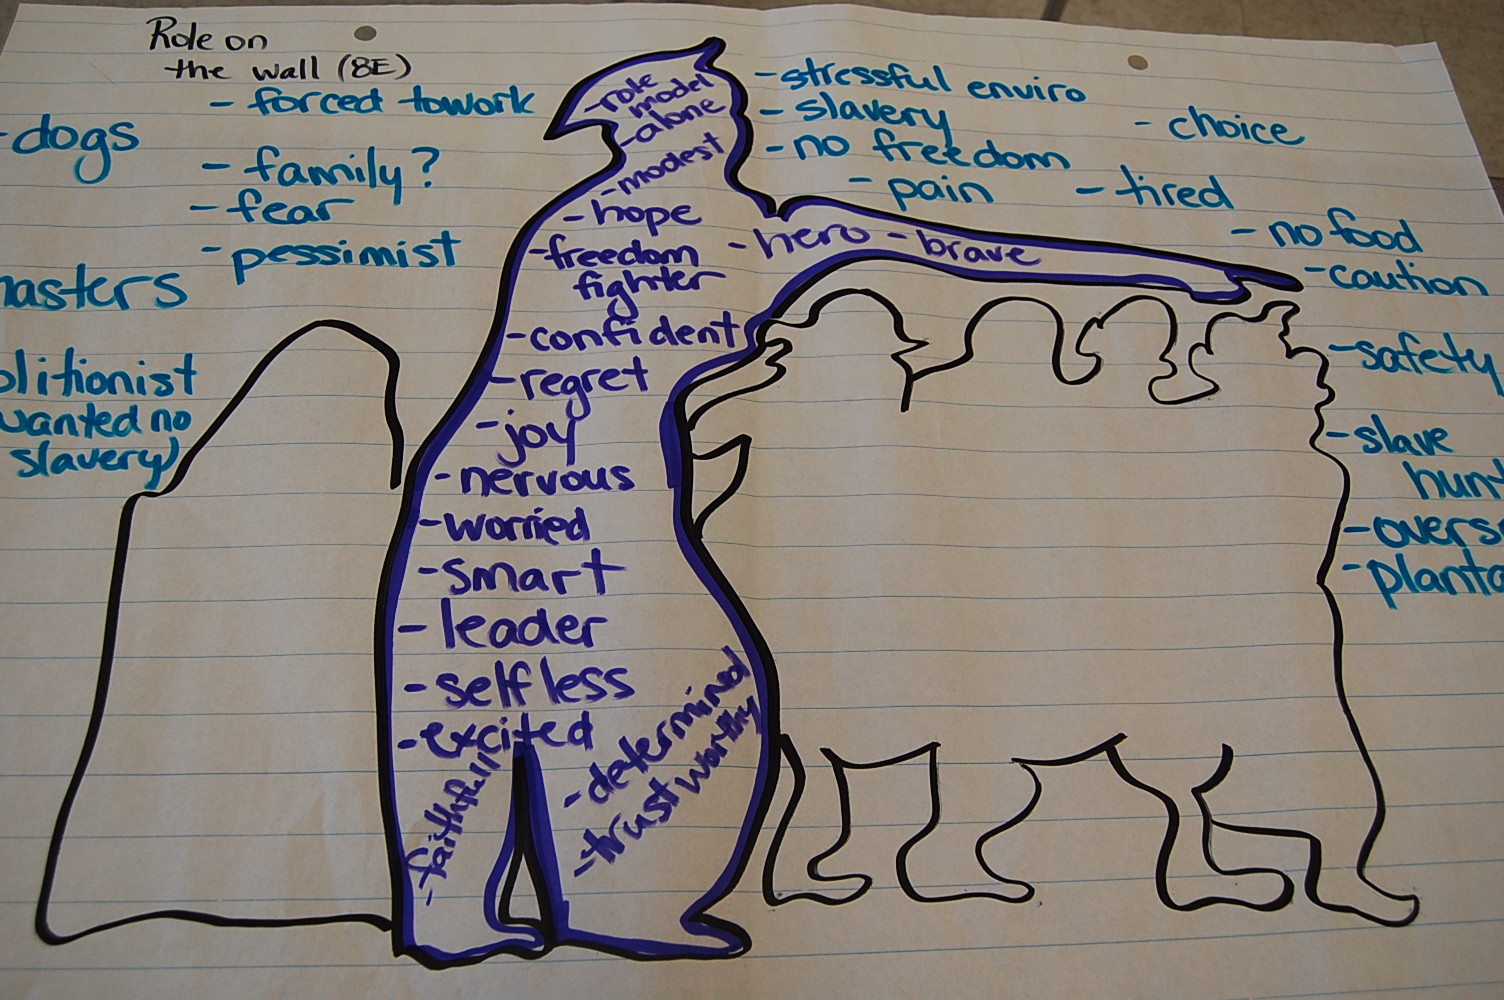 Role on
the wall (8E)
- forced to work
- dogs
- family?
- fear
- pessimist
asters
olitionist
wanted no
slavery)
- role
model
- alone
- modest
- hope
- freedom
fighter
- hero - brave
- confident
- regret
- joy
- nervous
- worried
- smart
- leader
- selfless
- excited
- faithfull
- determined
- trustworthy
- stressful enviro
- slavery
- no freedom
- pain
- choice
- tired
- no food
- caution
- safety
- slave
hun
- overs
- planta